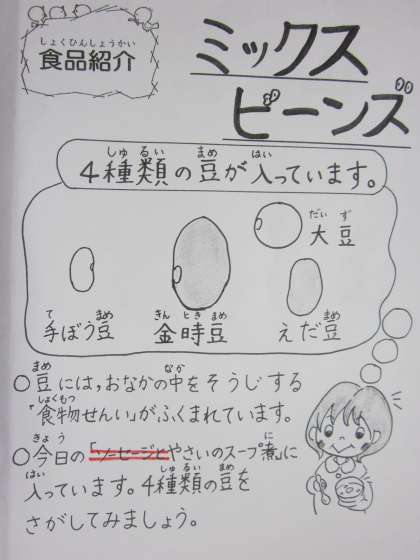 しょくひんしょうかい
食品紹介
ミックス
ビーンズ
しゅ るい まめ はい
4種類の豆が入っています。
だい ず
大豆
て まめ
手ぼう豆
きん とき まめ
金時豆
まめ
えだ豆
まめ なか
○豆には,おなかの中をそうじする
しょくもつ
「食物せんい」がふくまれています。
きょう に
○今日の「ソーセージとやさいのスープ煮」に
はい しゅるい まめ
入っています。4種類の豆を
さがしてみましょう。